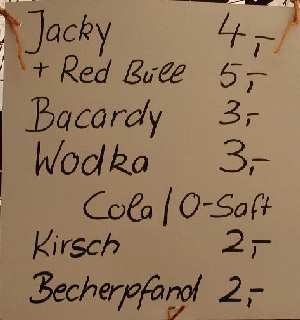 Jacky 4,-
+ Red Büll 5,-
Bacardy 3,-
Wodka 3,-
Cola / O-Saft
Kirsch 2,-
Becherpfand 2,-